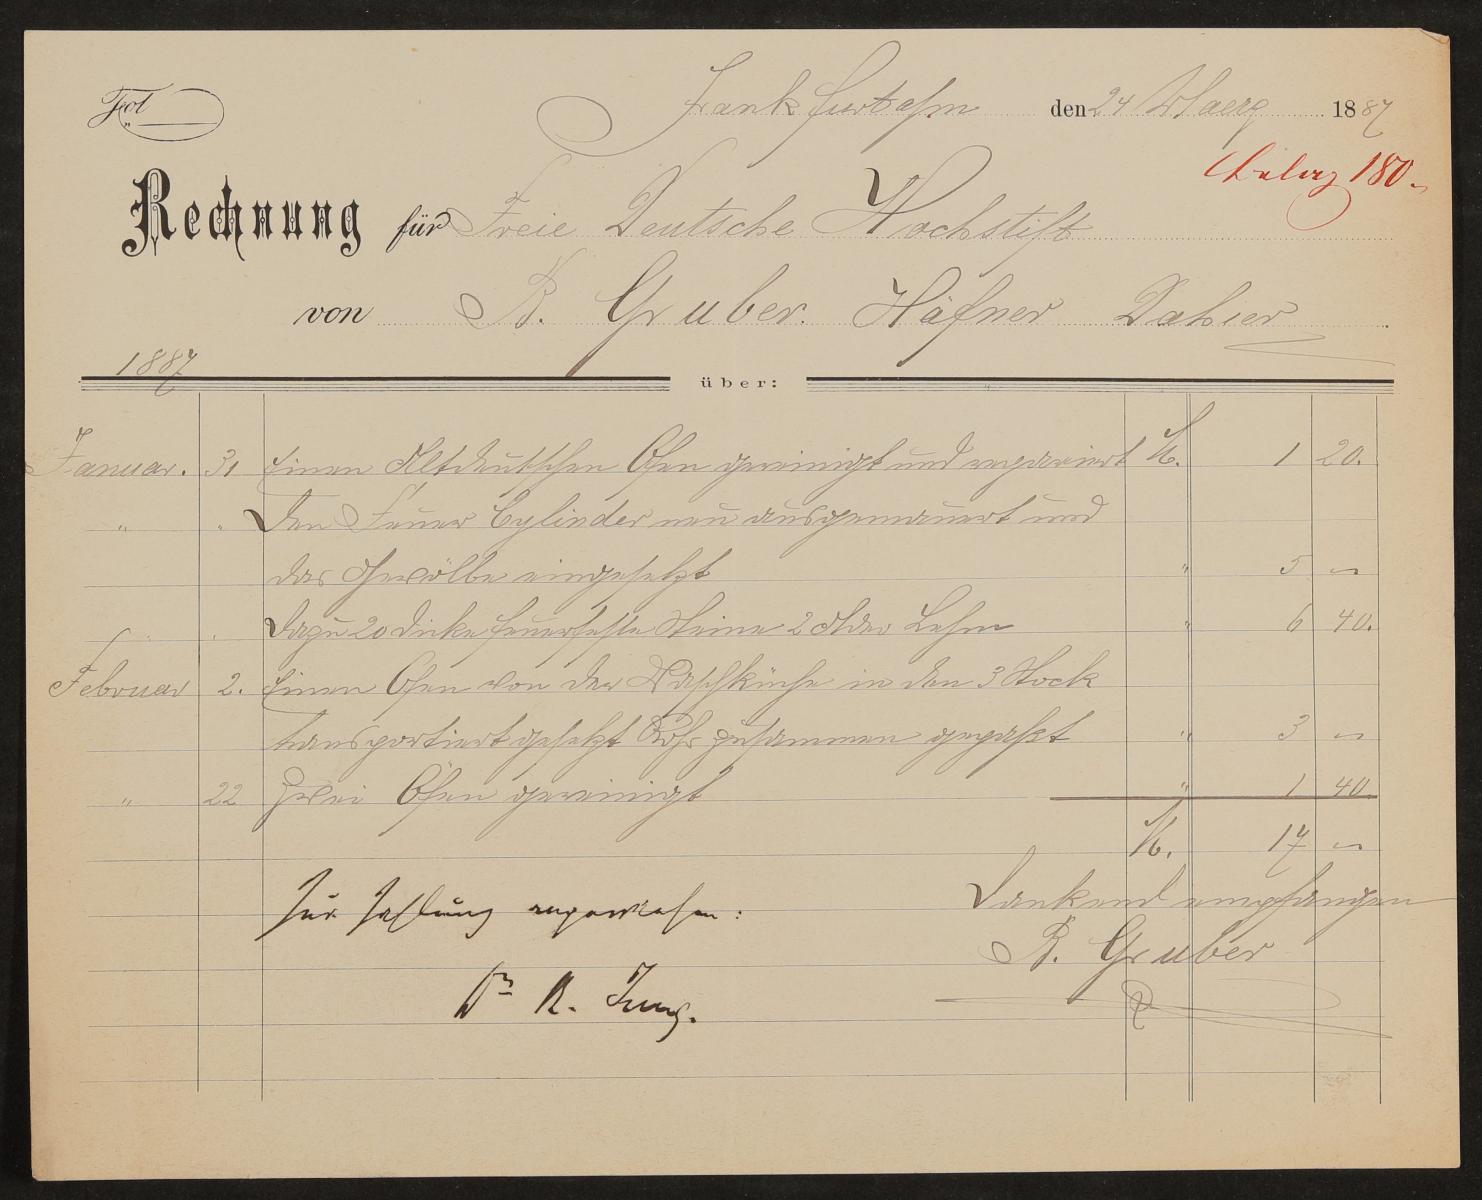 Fol.
Frankfurt a/m den 24 Maerz 1887
Beleg 180.
Rechnung für Freie Deutsche Hochstift
von B. Gruber. Häfner Dahier
1887
über:
Januar. 31 Einen Altdeutschen Ofen gereinigt und repariert M. 1 20.
" " Den Feuer Cylinder neu ausgemauert und
das Gewölbe eingesetzt " 5 —
" " dazu 20 dicke feuerfeste Steine 2 Lehm " 6 40.
Februar 2. Einen Ofen von der Waschküche in den 3 Stock
transportiert gesetzt Rohr zusammen gepaßt " 3 —
" 22 Zwei Öfen gereinigt " 1 40
M. 17 —
Zur Zahlung angewiesen:
Dankend empfangen
B. Gruber
Dr R. Jung.